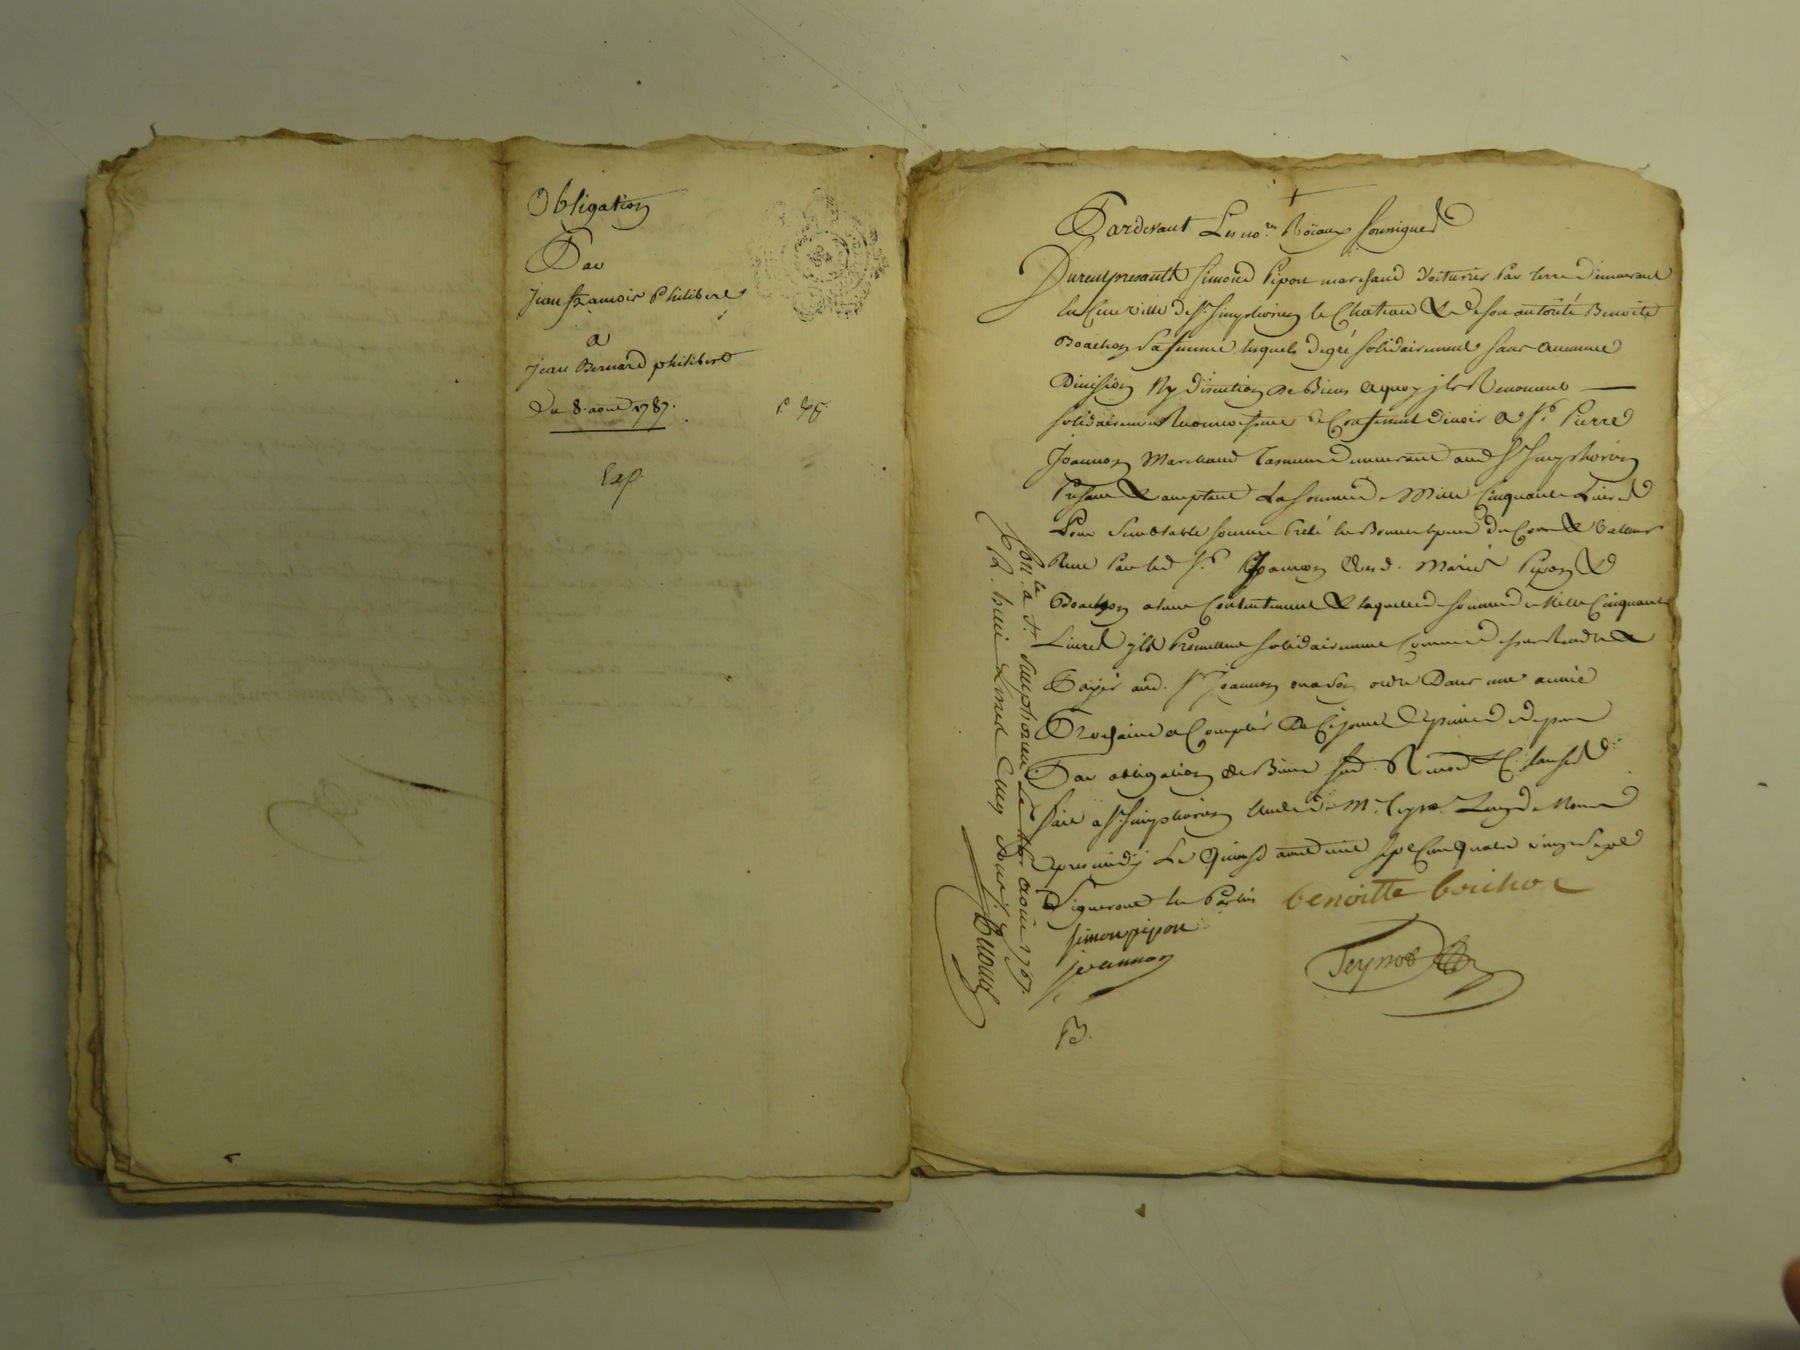 Obligation
Par
Jean françois Philibert
a
Jean Bernard philibert
Du 8. aout 1787.
Exp.
Pardevant Les no.res Roïaux soussignes
Furent presants Simond Pipon marchand Voiturier Par terre demeurant
en Cette ville de St. Simphorien le Chateau & de son autorité Benoite
Boachon sa femme lesquels de gré solidairement sans aucune
Division Ny discution de Biens a quoy ils Renoncent
solidairement Reconnoissent & Confessent devoir a Sr. Pierre
Joannon Marchand Taneur demeurant aud St Simphorien
Présent & acceptant La somme de Mille Cinquante Livres
Pour Semblable somme Preté en Bonnes espece de Cours & Valleur
Par led Sr. Joannon auxd. Mariés Pipon &
Boachon a leur Contentement & laquelle somme de Mille Cinquante
Livres ils Promettent solidairement Comme Rendre &
Payer aud. Sr Joannon ou a son ordre Dans une année
Prochaine a Compter De Ce jour a peine de depens
Par obligation de Biens Clauses
fait a St. Simphorien Etude de Me. Teyno L'un de Nous
apres midy Le Quinze aout mil sept Cent Quatre vingt sept
Signeront les Parties benoitte boichon
Simon pipon
joannon
Teyno
Con.lé a St. Simphorien Le aoust 1787.
R. huit Livres Cinq Sous